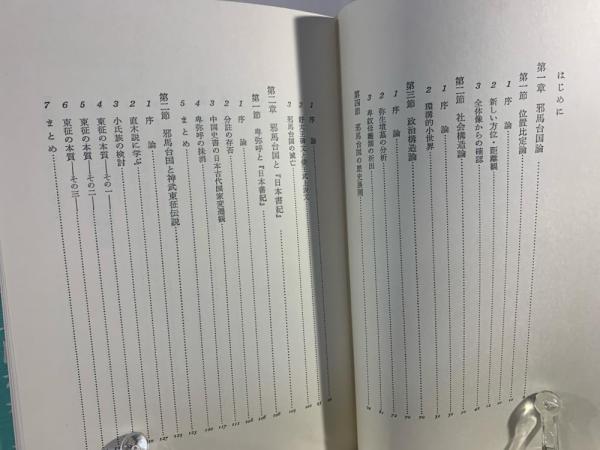 はじめに
第一章 邪馬台国論
第一節 位置比定論
1 序論
2 新しい方位・距離観
3 全体像からの確認
第二節 社会構造論
1 序論
2 環濠的小世界
第三節 政治構造論
1 序論
2 弥生墳墓の分析
3 卑奴母離国の析出
第四節 邪馬台国の歴史展開
1 序論
3 邪馬台国の滅亡
第二章 邪馬台国と『日本書紀』
第一節 卑弥呼と『日本書紀』
1 序論
2 分註の存否
3 中国史書の日本古代国家変遷観
4 卑弥呼の抹消
5 まとめ
第二節 邪馬台国と神武東征伝説
1 序論
2 直木説に学ぶ
3 小氏族の検討
4 東征の本質 その一
5 東征の本質 その二
6 東征の本質 その三
7 まとめ